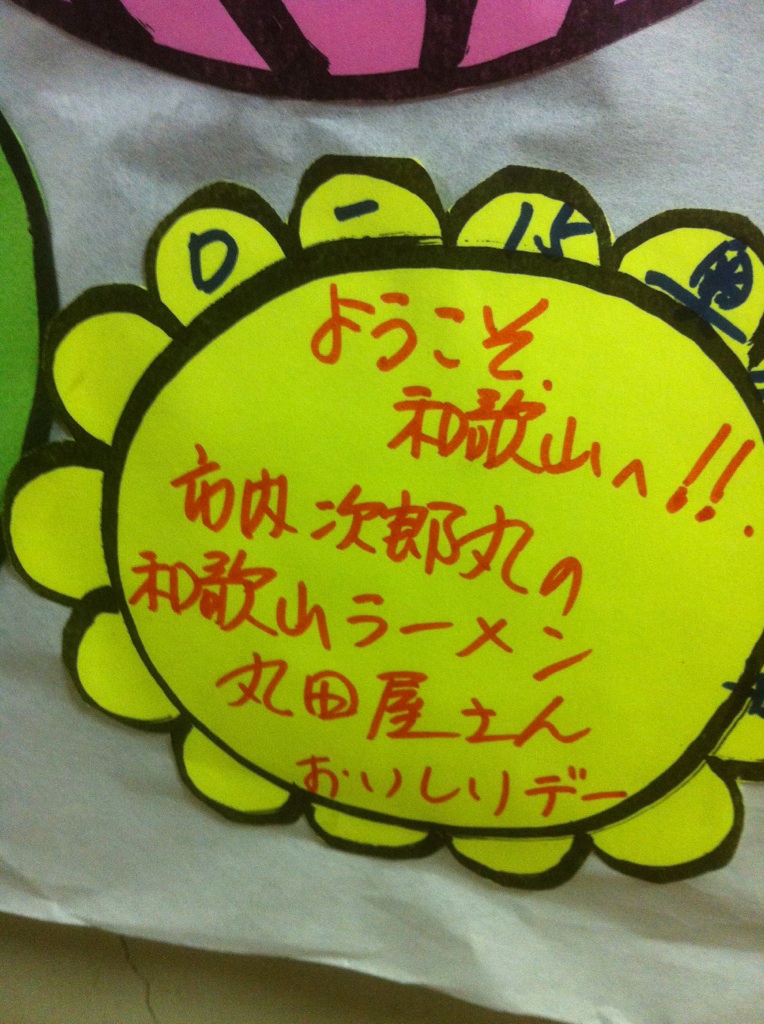 D-15
ようこそ.
和歌山へ!!.
市内次郎丸の
和歌山ラーメン
丸田屋さん
おいしいデー